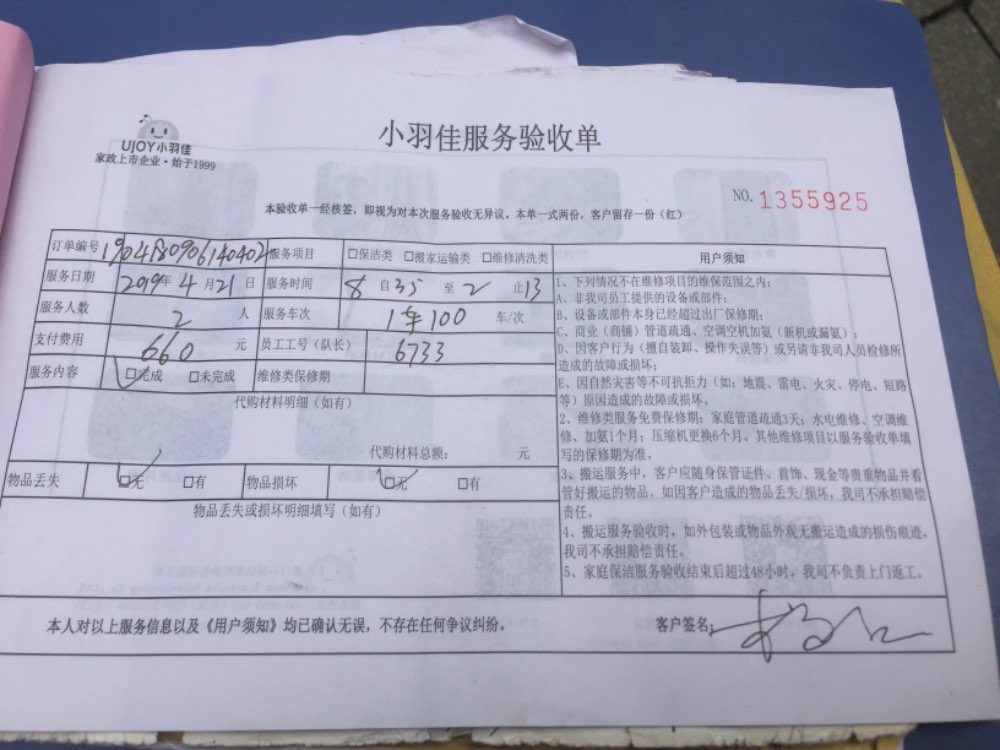 UJOY小羽佳
家政上市企业·始于1999
小羽佳服务验收单
NO. 1355925
本验收单一经核签，即视为对本次服务验收无异议。本单一式两份，客户留存一份（红）
订单编号 1904180906140402 服务项目 □保洁类 □搬家运输类 □维修清洗类
服务日期 2019年 4 月 21 日 服务时间 8 自 35 至 2 止 13
服务人数 2 人 服务车次 1车 100 车/次
支付费用 660 元 员工工号（队长） 6733
服务内容 □完成 □未完成 维修类保修期
代购材料明细（如有）
代购材料总额： 元
物品丢失 □无 □有 物品损坏 □无 □有
物品丢失或损坏明细填写（如有）
用户须知
1、下列情况不在维修项目的维保范围之内：
A、非我司员工提供的设备或部件；
B、设备或部件本身已经超过出厂保修期；
C、商业（商铺）管道疏通、空调空机加氨（新机或漏氨）；
D、因客户行为（擅自装卸、操作失误等）或另请非我司人员检修所
造成的故障或损坏；
E、因自然灾害等不可抗拒力（如：地震、雷电、火灾、停电、短路
等）原因造成的故障或损坏。
2、维修类服务免费保修期：家庭管道疏通3天；水电维修、空调维
修、加氨1个月；压缩机更换6个月。其他维修项目以服务验收单填
写的保修期为准。
3、搬运服务中，客户应随身保管证件、首饰、现金等贵重物品并看
管好搬运的物品。如因客户造成的物品丢失/损坏，我司不承担赔偿
责任。
4、搬运服务验收时，如外包装或物品外观无搬运造成的损伤痕迹，
我司不承担赔偿责任。
5、家庭保洁服务验收结束后超过48小时，我司不负责上门返工。
本人对以上服务信息以及《用户须知》均已确认无误，不存在任何争议纠纷。
客户签名：